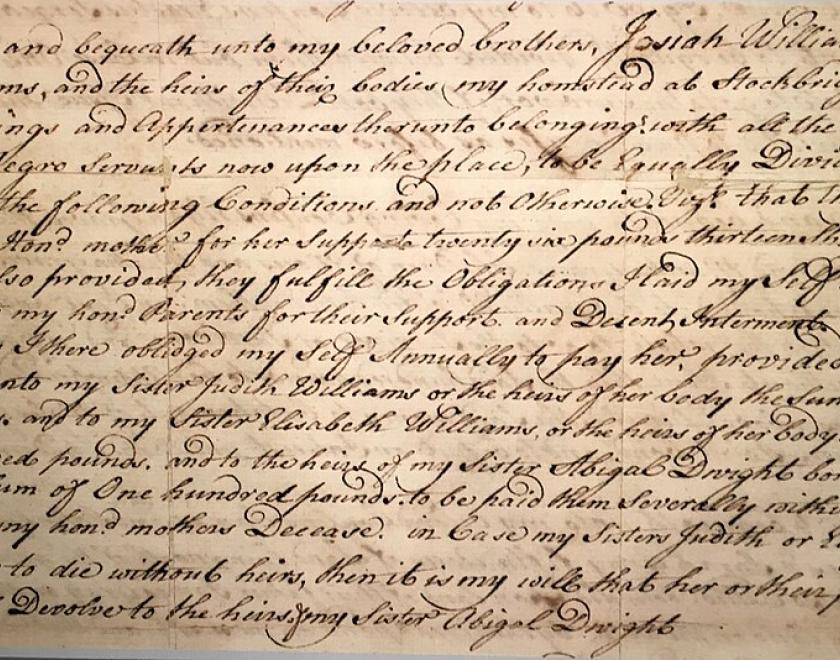 and bequeath unto my beloved brothers, Josiah Willia
ms, and the heirs of their bodies my homstead at Stockbrig
ings and Appertenances therunto belonging; with all the
egro Servants now upon the place, to be Equally Divi
the following Conditions and not Otherwise. Viz.t that
Hon.d mother for her Support twenty six pounds thirteen Sh
lso provided, they fulfill the Obligations I laid my Self
my hon.d Parents for their Support. and Desent Interment.
I there oblidged my Self Annually to pay her, provided
nto my Sister Judith Williams or the heirs of her body the Sum
s. and to my Sister Elisabeth Williams, or the heirs of her body
ed pounds. and to the heirs of my Sister Abigal Dwight bo
um of One hundred pounds. to be paid them Severally with
my hon.d mothers Decease. in Case my Sisters Judith or E
to die without heirs, then it is my will that her or their
Devolve to the heirs of my Sister Abigal Dwight